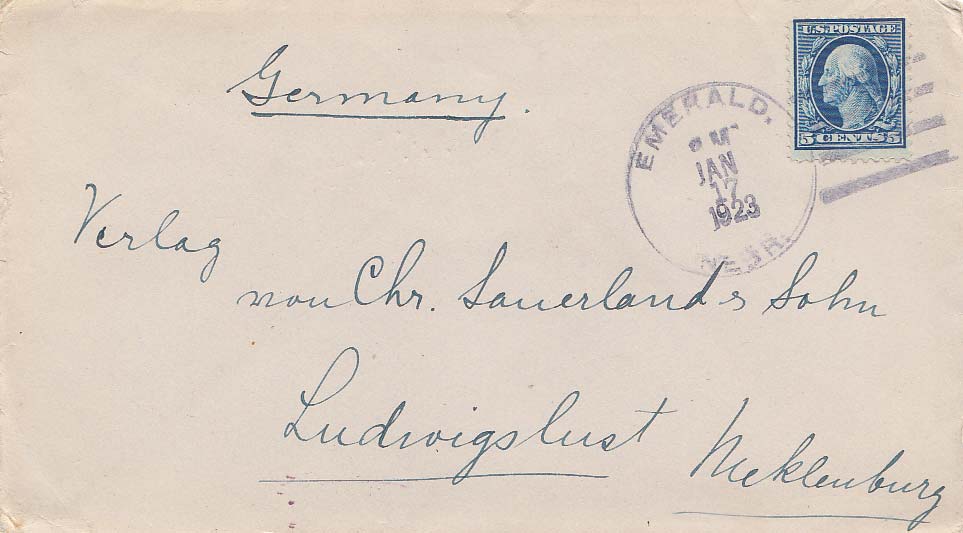 U.S. POSTAGE
5 CENTS 5
EMERALD,
JAN
17
1923
NEBR.
Germany.
Verlag
von Chr. Sauerlands Sohn
Ludwigslust
Meklenburg